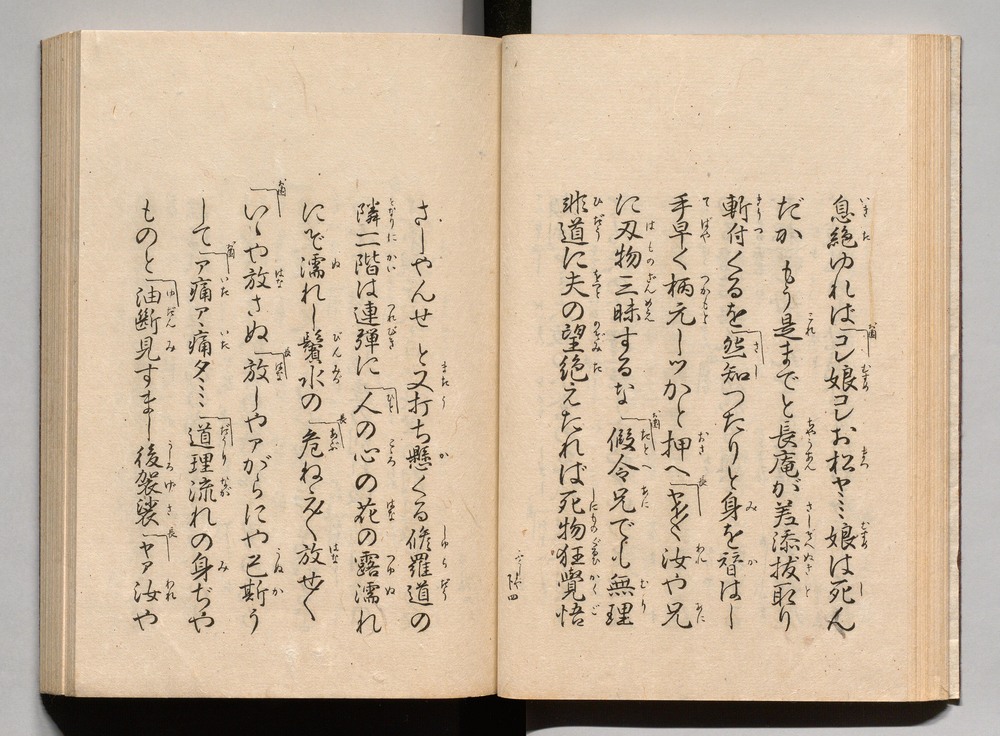 息絶ゆれは「コレ娘コレお松ヤミミ娘は死ん
だか もう是までと長庵が差添抜取り
斬付くるを「然知つたりと身を替はし
手早く柄元しツかと押へ「汝や兄
に刃物三昧するな「假令兄でも無理
非道に夫の望絶えたれば死物狂覺悟
さしやんせ と又打ち懸くる修羅道の
隣二階は連彈に「人の心の花の露濡れ
にぞ濡れし鬢水の「危ねえ〳〵放せ〳〵
「いゝや放さぬ「放しやァがらにや已斯う
して「ア痛アヽ痛タミミ「道理流れの身ぢや
ものと「油斷見すまし後袈裟「ヤァ汝や